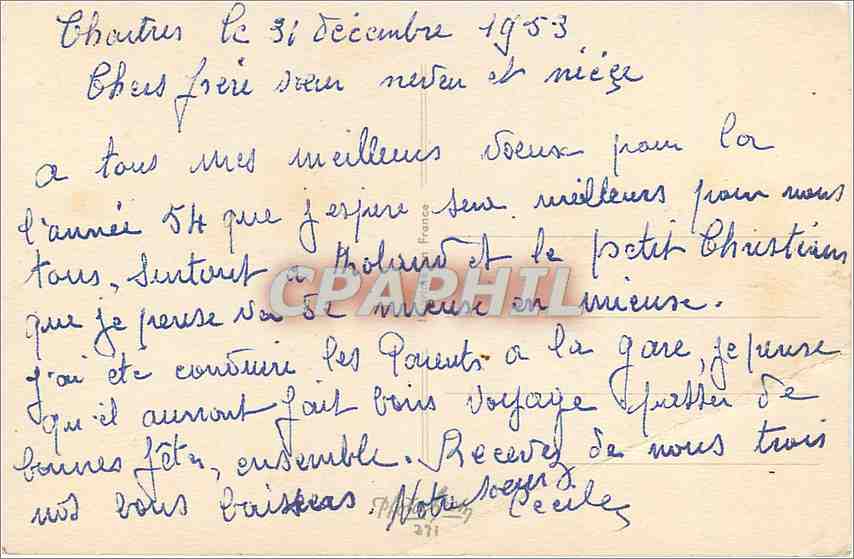 Chartres le 31 décembre 1953
Chers frère sœur neveu et nièçe
a tous mes meilleurs vœux pour la
l'année 54 que j'espere sera meilleurs pour nous
tous, Surtout a Roland et le petit Christian
que je pense va de mieuse en mieuse.
j'ai ete conduire les Parents a la gare, je pense
qu'il auront fait bons voyage passer de
bonnes fêtes, ensemble. Recevez de nous trois
nos bons baisers. Votre soeur
Cecile
CPAPHIL
France
271